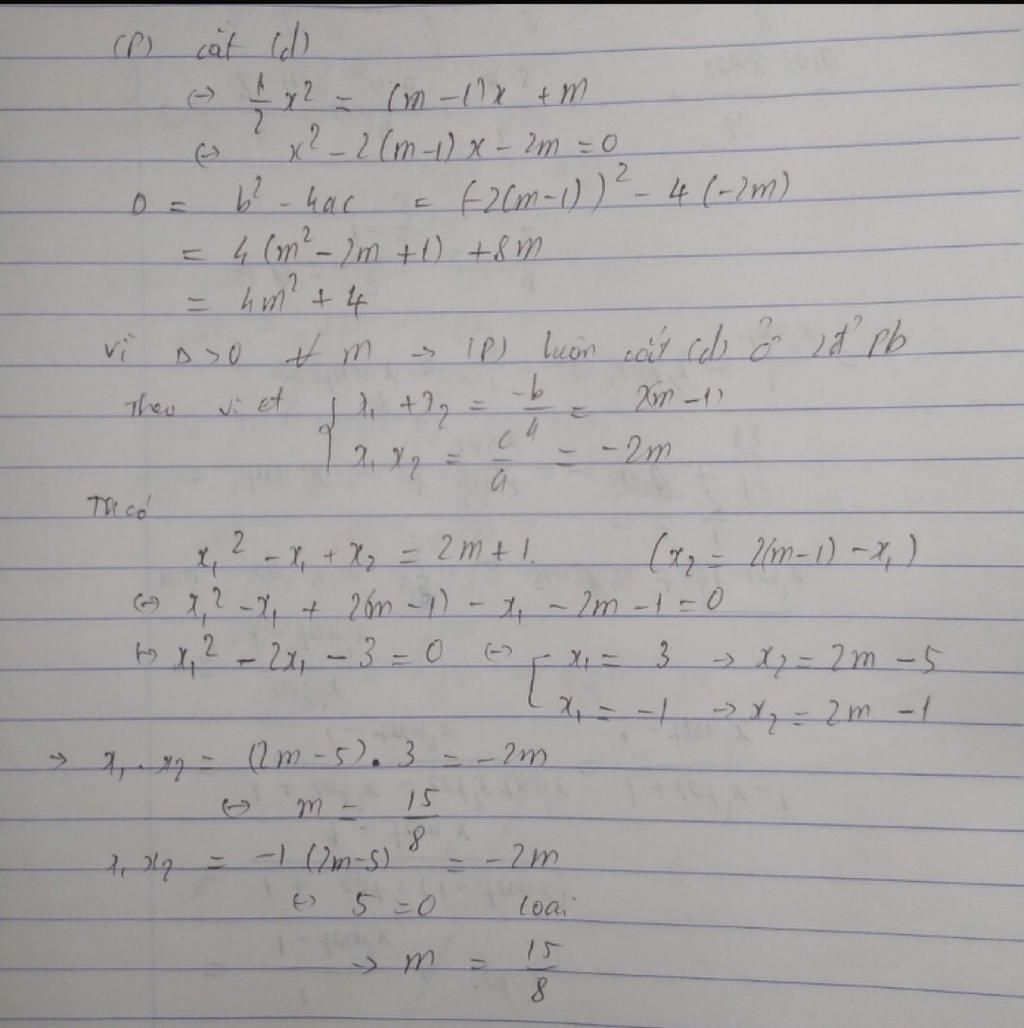 (P) cắt (d)
↔ 1/2 x² = (m-1)x + m
↔ x² - 2(m-1)x - 2m = 0
Δ = b² - 4ac = (-2(m-1))² - 4(-2m)
= 4(m² - 2m + 1) + 8m
= 4m² + 4
Vì Δ>0 ∀ m → (P) luôn cắt (d) ở 2đ' Pb
Theo vi et { x₁ + x₂ = -b/a = 2(m-1)
x₁ x₂ = c/a = -2m
Ta có
x₁² - x₁ + x₂ = 2m + 1. (x₂ = 2(m-1) - x₁)
↔ x₁² - x₁ + 2(m-1) - x₁ - 2m - 1 = 0
↔ x₁² - 2x₁ - 3 = 0 ↔ [ x₁ = 3 → x₂ = 2m - 5
x₁ = -1 → x₂ = 2m - 1
→ x₁ . x₂ = (2m - 5) . 3 = -2m
↔ m = 15/8
x₁ x₂ = -1 (2m-5) = -2m
↔ 5 = 0 loại
→ m = 15/8